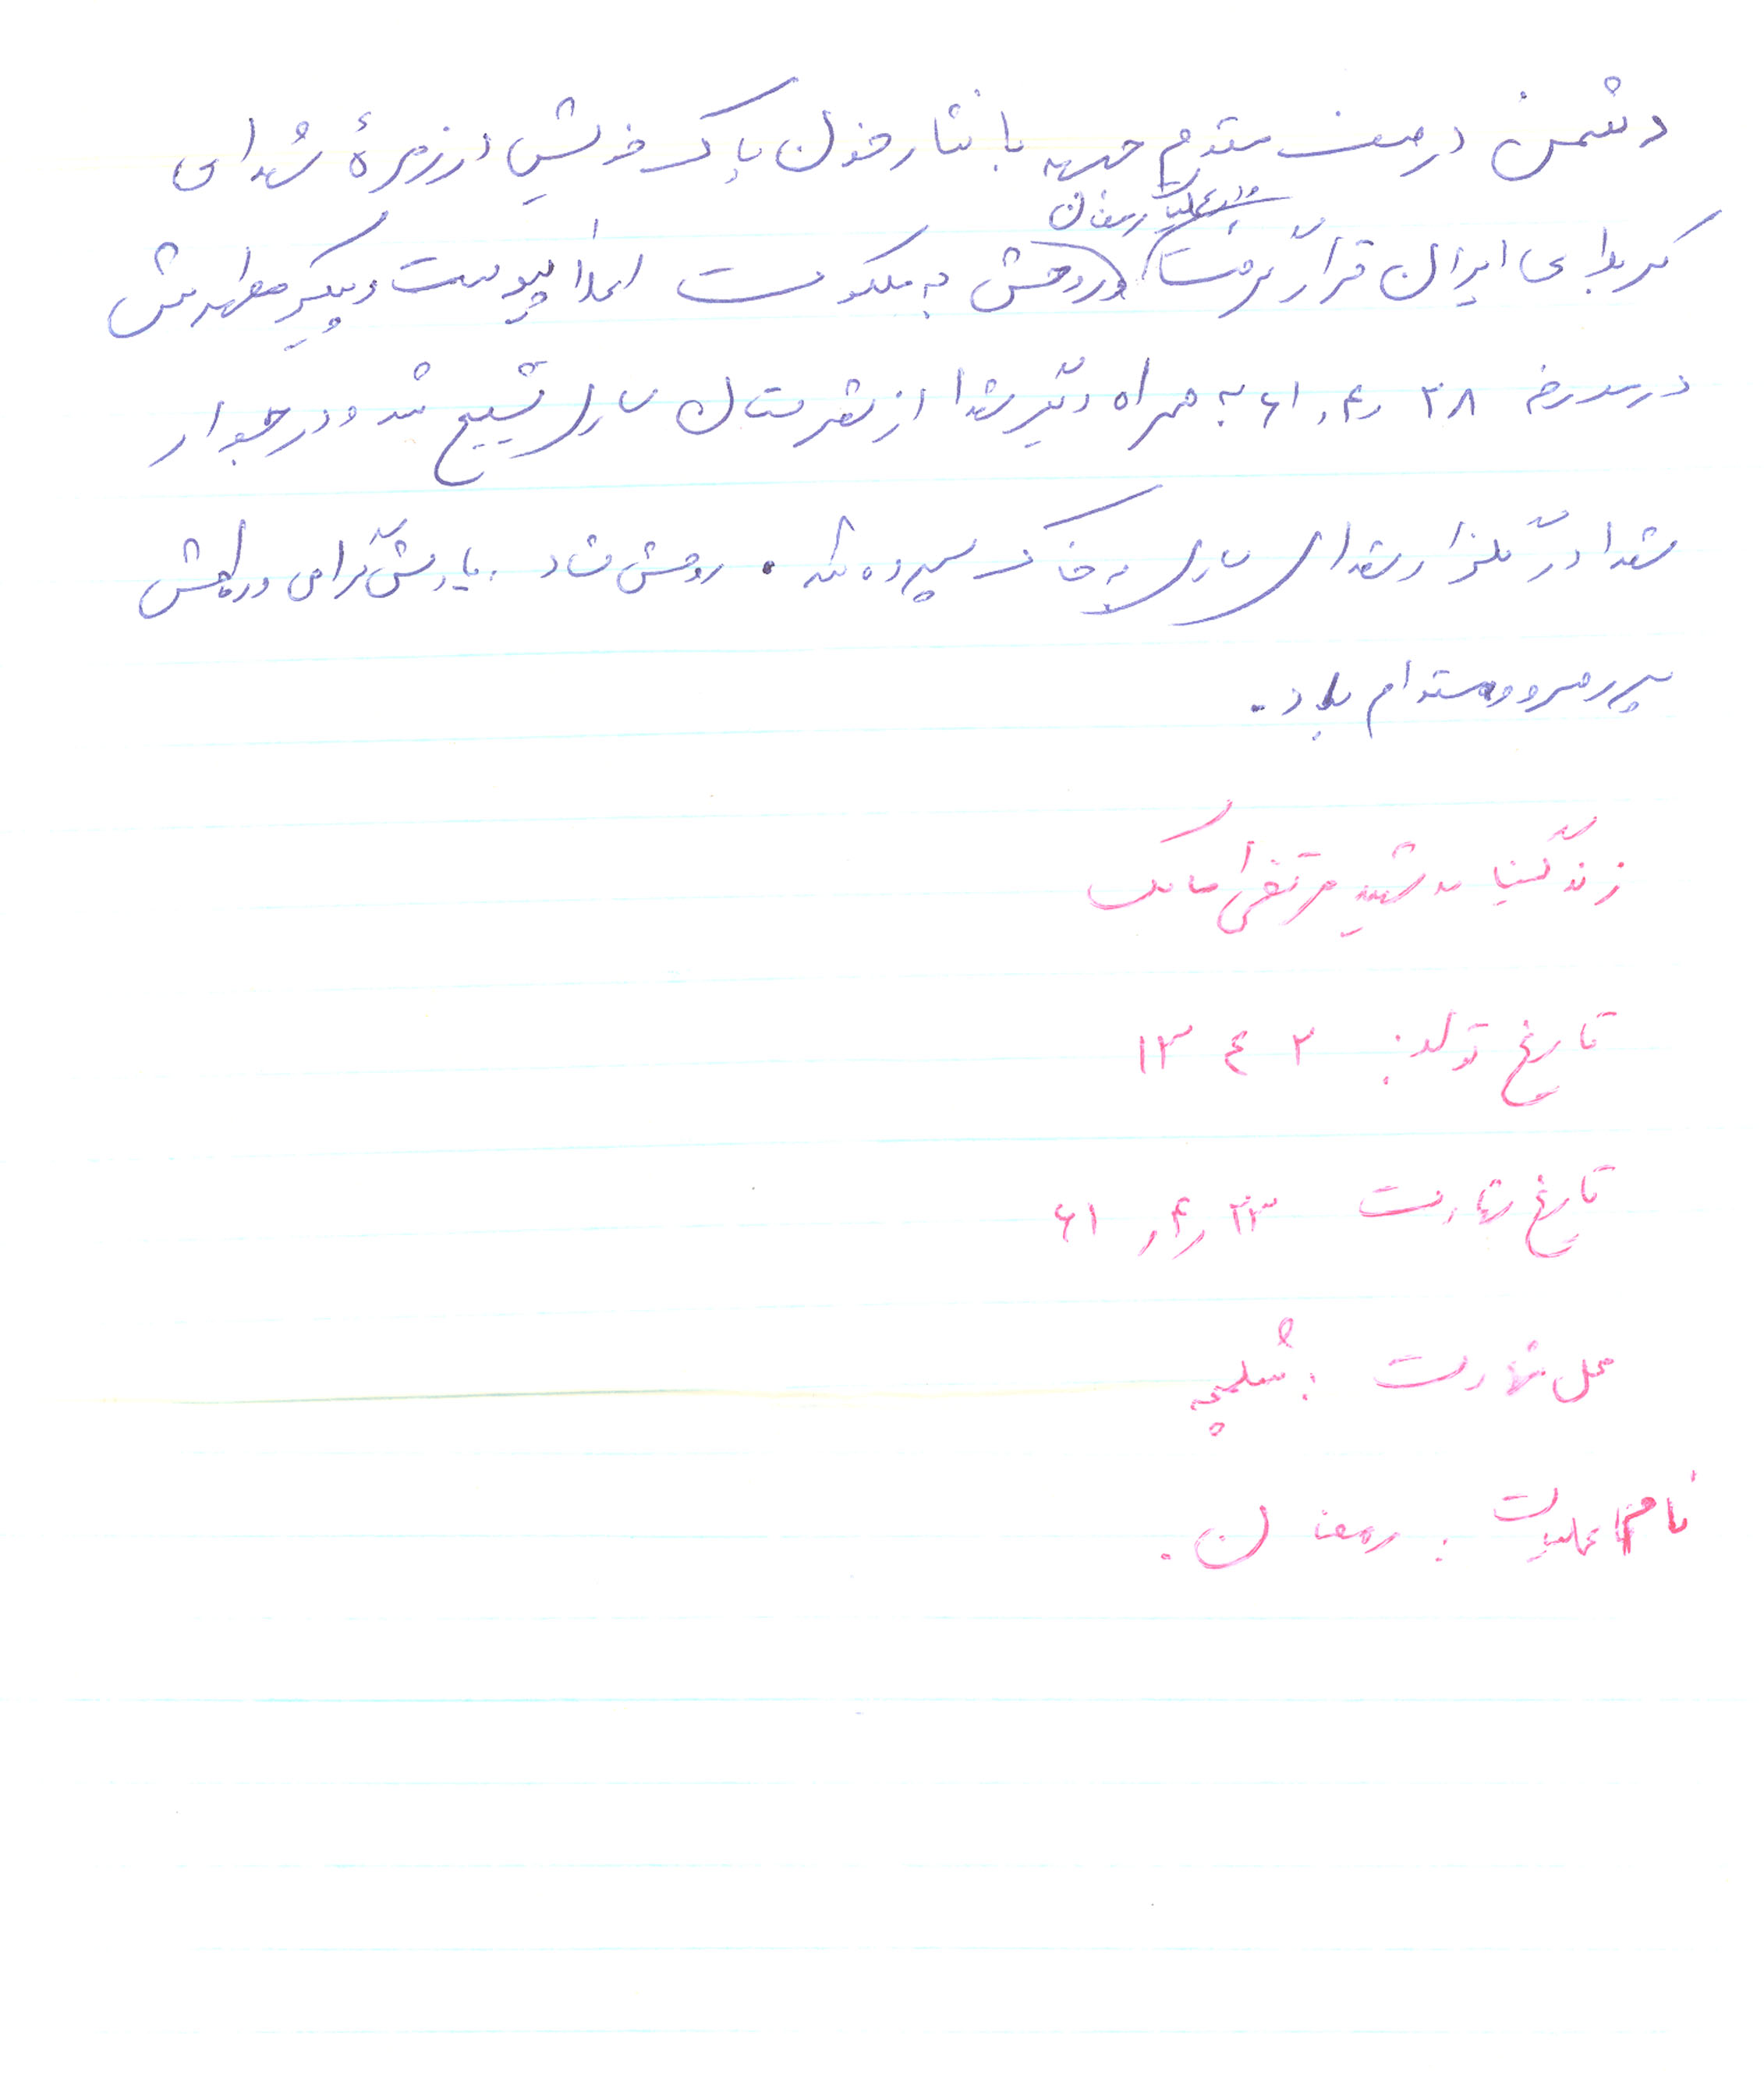 دشمن در صف مقدم جبهه با نثار خون پاک خویش در زمرۀ شهدای
در عملیات رمضان
کربلای ایران قرار گرفت و روحش به ملکوت اعلا پیوست و پیکر مطهرش
در مورخه ۲۸ ر۴ر ۶۱ به همراه دیگر شهدا از شهرستان ساری تشییع شد و در جوار
شهدا در گلزار شهدای ساری به خاک سپرده شد . روحش شاد . یادش گرامی و راهش
پر رهرو و مستدام باد .
زندگینامه شهید مرتضی
تاریخ تولد : ۱۳۴۲
تاریخ شهادت ۲۳ ر۴ر ۶۱
محل شهادت : شلمچه
نام عملیات : رمضان .